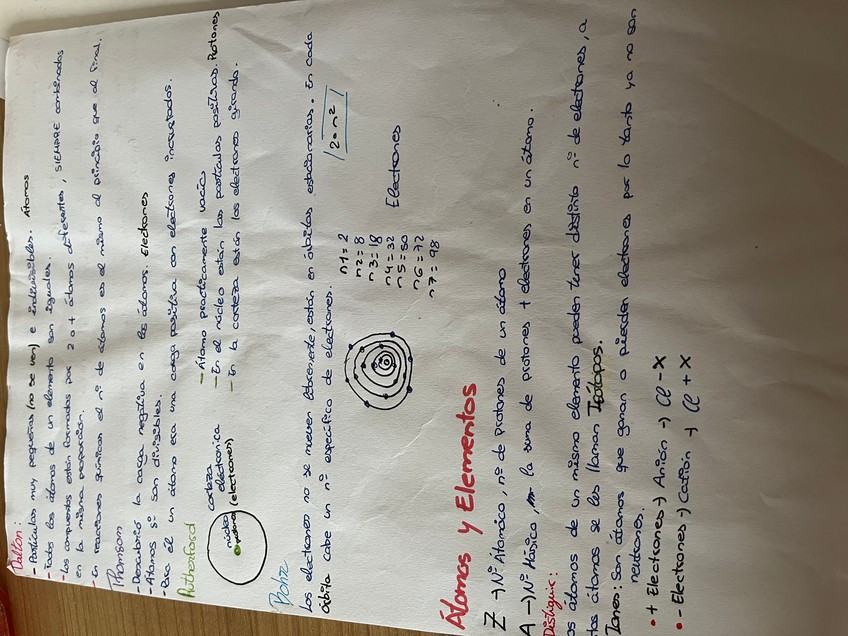 Dalton:
- Partículas muy pequeñas (no se ven) e indivisibles. Átomos
- Todos los átomos de un elemento son iguales.
- Los compuestos están formados por 2 o + átomos diferentes, SIEMPRE combinados
en la misma proporción.
- En reacciones químicas el nº de átomos es el mismo al principio que al final.
Thomsom
- Descubrió la carga negativa en los átomos. Electrones
- Átomos si son divisibles.
- Para él un átomo era una carga positiva con electrones incrustados.
Rutherford
corteza
electrónica
(electrones)
núcleo
protones
- Átomo practicamente vacío
- En el núcleo están las partículas positivas. Protones
- En la corteza están los electrones girando.
Bohr
Los electrones no se mueven libremente, están en órbitas estacionarias. En cada
órbita cabe un nº específico de electrones.
2·n²
n1=2
n2=8
n3=18
n4=32
n5=50
n6=72
n7=98
Electrones
Átomos y Elementos
Z → Nº Atómico, nº de protones de un átomo
A → Nº Másico, la suma de protones + electrones en un átomo.
Distinguir:
os átomos de un mismo elemento pueden tener distinto nº de electrones, a
tos átomos se les llaman Isótopos.
Iones: Son átomos que ganan o pierden electrones por lo tanto ya no son
neutrones.
• + Electrones → Anión → Cl - X
• - Electrones → Catión → Cl + X